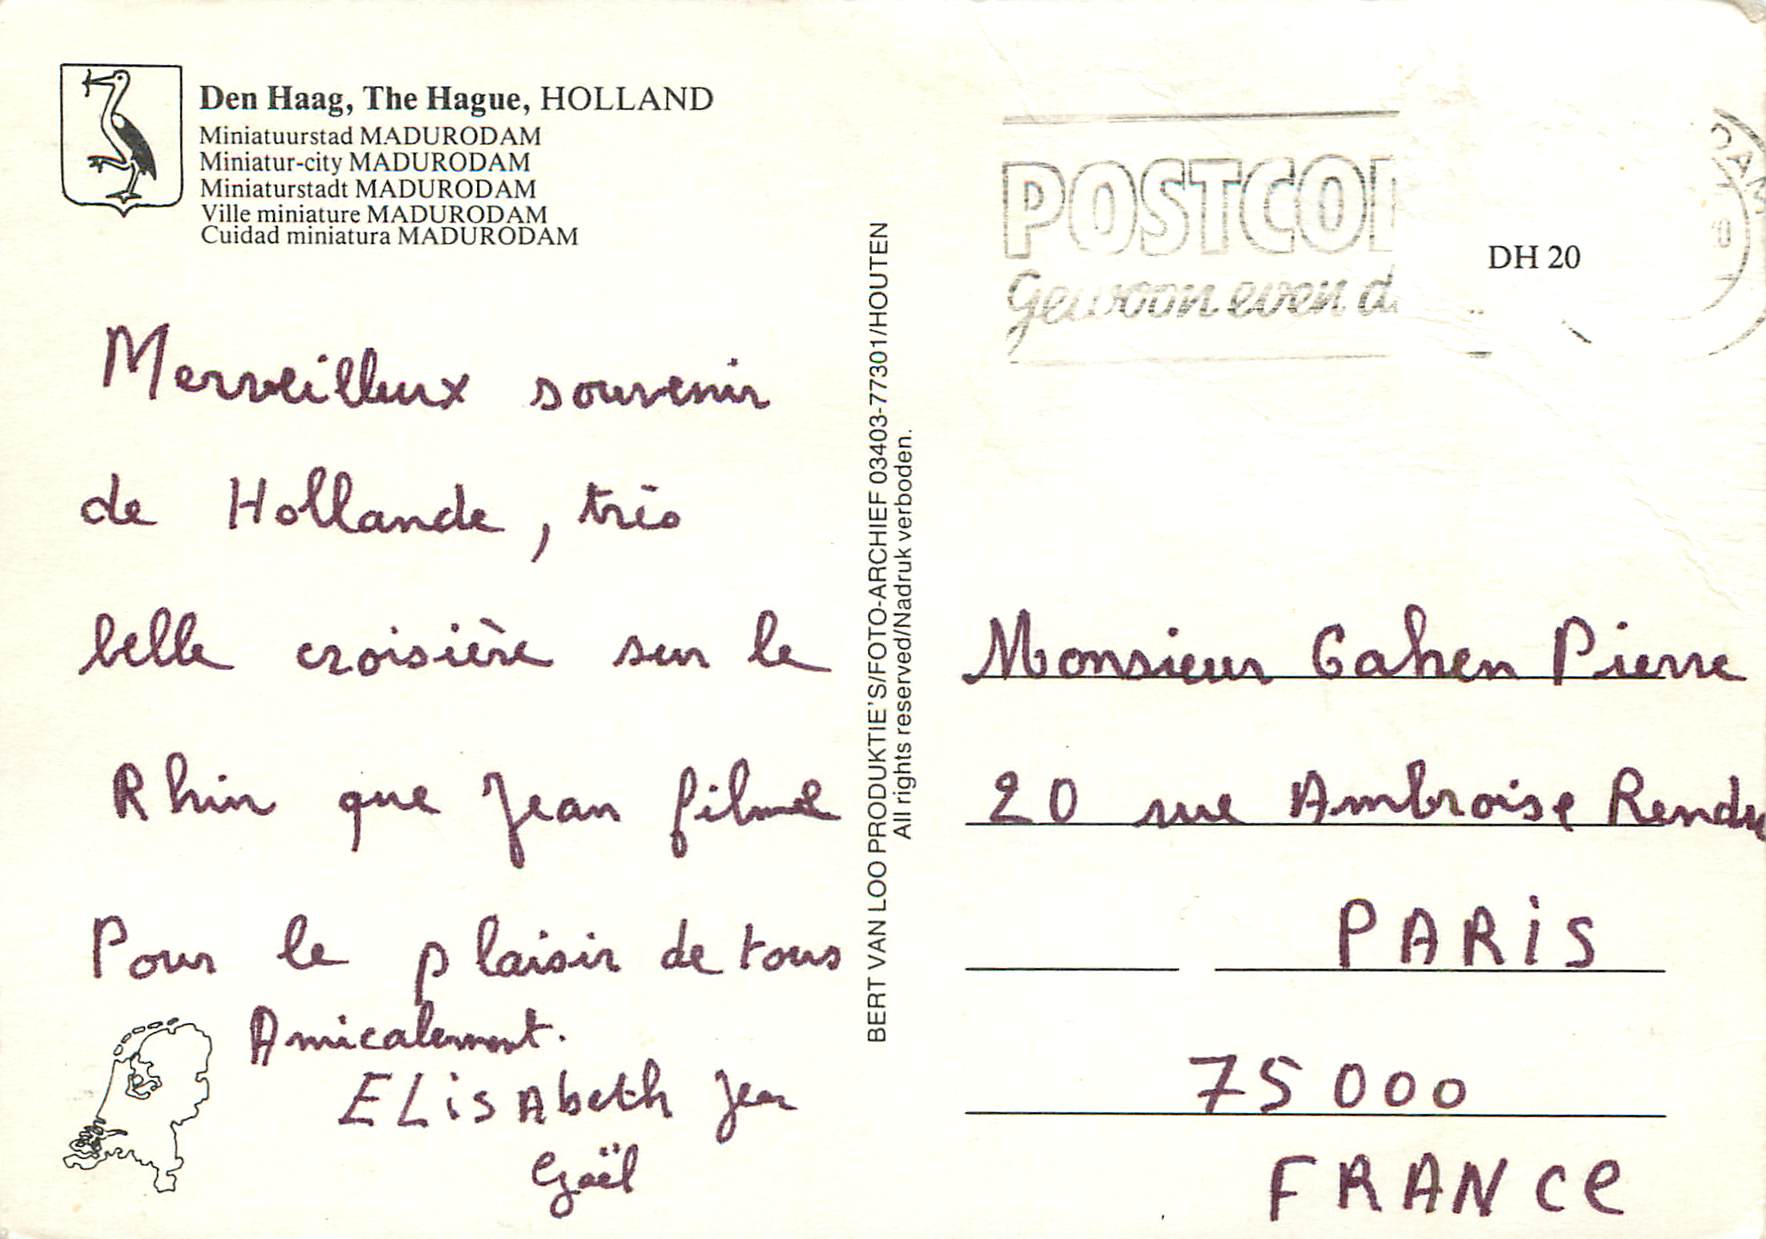 Den Haag, The Hague, HOLLAND
Miniatuurstad MADURODAM
Miniatur-city MADURODAM
Miniaturstadt MADURODAM
Ville miniature MADURODAM
Cuidad miniatura MADURODAM
Merveilleux souvenir
de Hollande, très
belle croisière sur le
Rhin que Jean filme
Pour le plaisir de tous
Amicalement.
ELiSAbeth Jean
Gaël
BERT VAN LOO PRODUKTIE'S/FOTO-ARCHIEF 03403-77301/HOUTEN
All rights reserved/Nadruk verboden.
POSTCOD
Gewoon even d
DAM
DH 20
Monsieur Cahen Pierre
20 rue Ambroise Rendu
PARiS
75000
FRANCe